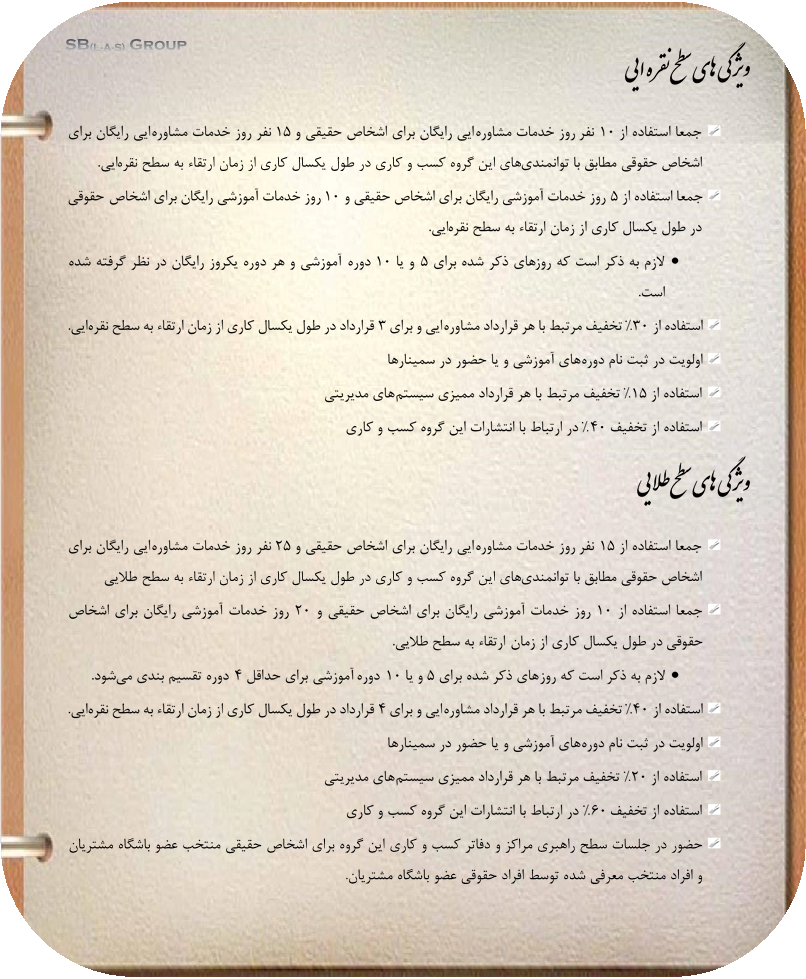 SB(L-A-S) GROUP
ویژگی های سطح نقره ایی
جمعا استفاده از ۱۰ نفر روز خدمات مشاوره‌ایی رایگان برای اشخاص حقیقی و ۱۵ نفر روز خدمات مشاوره‌ایی رایگان برای
اشخاص حقوقی مطابق با توانمندی‌های این گروه کسب و کاری در طول یکسال کاری از زمان ارتقاء به سطح نقره‌ایی.
جمعا استفاده از ۵ روز خدمات آموزشی رایگان برای اشخاص حقیقی و ۱۰ روز خدمات آموزشی رایگان برای اشخاص حقوقی
در طول یکسال کاری از زمان ارتقاء به سطح نقره‌ایی.
● لازم به ذکر است که روزهای ذکر شده برای ۵ و یا ۱۰ دوره آموزشی و هر دوره یکروز رایگان در نظر گرفته شده
است.
استفاده از ۳۰٪ تخفیف مرتبط با هر قرارداد مشاوره‌ایی و برای ۳ قرارداد در طول یکسال کاری از زمان ارتقاء به سطح نقره‌ایی.
اولویت در ثبت نام دوره‌های آموزشی و یا حضور در سمینارها
استفاده از ۱۵٪ تخفیف مرتبط با هر قرارداد ممیزی سیستم‌های مدیریتی
استفاده از تخفیف ۴۰٪ در ارتباط با انتشارات این گروه کسب و کاری
ویژگی های سطح طلایی
جمعا استفاده از ۱۵ نفر روز خدمات مشاوره‌ایی رایگان برای اشخاص حقیقی و ۲۵ نفر روز خدمات مشاوره‌ایی رایگان برای
اشخاص حقوقی مطابق با توانمندی‌های این گروه کسب و کاری در طول یکسال کاری از زمان ارتقاء به سطح طلایی
جمعا استفاده از ۱۰ روز خدمات آموزشی رایگان برای اشخاص حقیقی و ۲۰ روز خدمات آموزشی رایگان برای اشخاص
حقوقی در طول یکسال کاری از زمان ارتقاء به سطح طلایی.
● لازم به ذکر است که روزهای ذکر شده برای ۵ و یا ۱۰ دوره آموزشی برای حداقل ۴ دوره تقسیم بندی می‌شود.
استفاده از ۴۰٪ تخفیف مرتبط با هر قرارداد مشاوره‌ایی و برای ۴ قرارداد در طول یکسال کاری از زمان ارتقاء به سطح نقره‌ایی.
اولویت در ثبت نام دوره‌های آموزشی و یا حضور در سمینارها
استفاده از ۲۰٪ تخفیف مرتبط با هر قرارداد ممیزی سیستم‌های مدیریتی
استفاده از تخفیف ۶۰٪ در ارتباط با انتشارات این گروه کسب و کاری
حضور در جلسات سطح راهبری مراکز و دفاتر کسب و کاری این گروه برای اشخاص حقیقی منتخب عضو باشگاه مشتریان
و افراد منتخب معرفی شده توسط افراد حقوقی عضو باشگاه مشتریان.